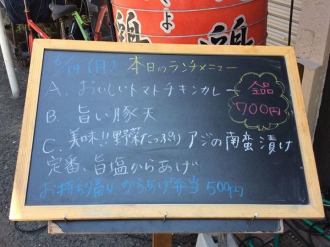 (月) 本日のランチメニュー
A. おいしいトマトチキンカレー
全品
700円
B. 旨い豚天
C. 美味!!野菜たっぷり アジの南蛮漬け
定番、旨塩からあげ
お持ち帰り からあげ弁当 500円